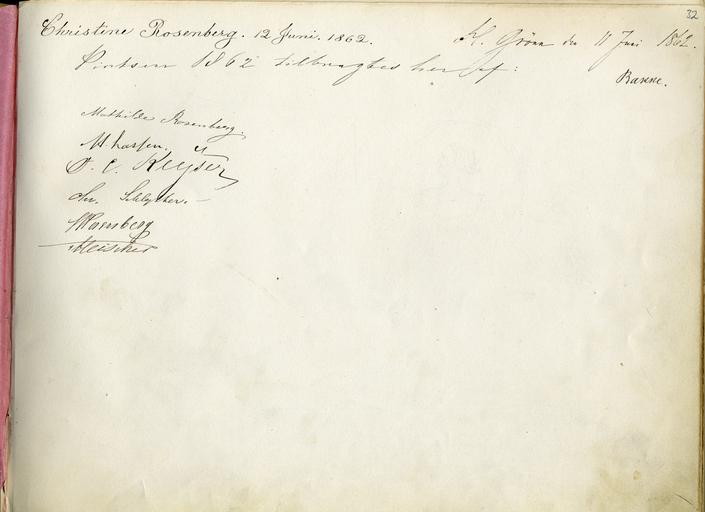 32
Christine Rosenberg. 12 Juni. 1862.
Kl. Grönn den 11 Juni 1862.
Pintsen 1862 tilbragtes her af:
Mathilde Rosenberg.
M. Larsen.
C. Keyser
Chr.
Rosenberg
Fleischer